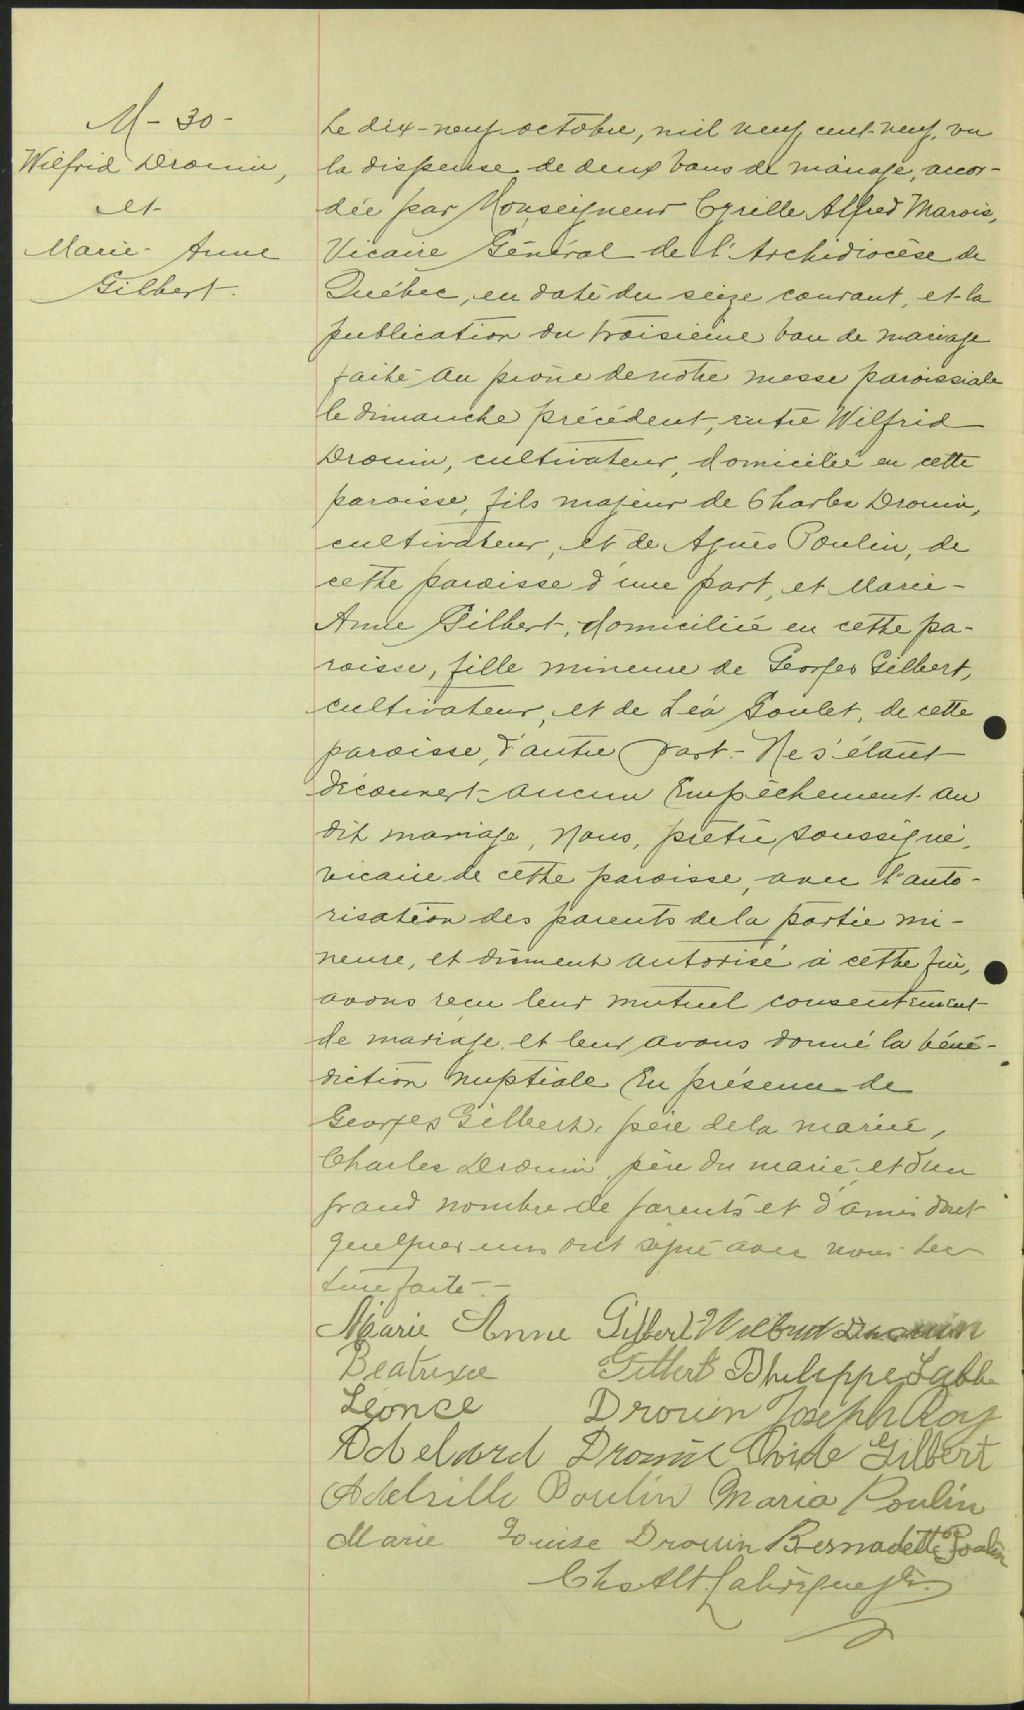 M - 30 -
Wilfrid Drouin,
et
Marie-Anne
Gilbert.
Le dix-neuf octobre, mil neuf cent-neuf, vu
la dispense de deux bans de mariage, accor-
dée par Monseigneur Cyrille Alfred Marois,
Vicaire Général de l'Archidiocèse de
Québec, en date du seize courant, et la
publication du troisième ban de mariage
faite au prône de notre messe paroissiale
le dimanche précédent, entre Wilfrid
Drouin, cultivateur, domicilié en cette
paroisse, fils majeur de Charles Drouin,
cultivateur, et de Agnès Poulin, de
cette paroisse d'une part, et Marie-
Anne Gilbert, domiciliée en cette pa-
roisse, fille mineure de Georges Gilbert,
cultivateur, et de Léa Goulet, de cette
paroisse, d'autre part. - Ne s'étant
découvert aucun empêchement au
dit mariage, Nous, prêtre soussigné,
vicaire de cette paroisse, avec l'auto-
risation des parents de la partie mi-
neure, et dûment autorisé à cette fin,
avons reçu leur mutuel consentement
de mariage et leur avons donné la béné-
diction nuptiale en présence de
Georges Gilbert, père de la mariée,
Charles Drouin, père du marié et d'un
grand nombre de parents et d'amis dont
quelques uns ont signé avec nous. Lec-
ture faite. -
Marie Anne Gilbert Wilfrid Drouin
Beatrixe Gilbert Philippe Labbe
Léonce Drouin Joseph Roy
Adelard Drouin Ovide Gilbert
Poulin Maria Poulin
Marie Louise Drouin Bernadette Poulin
Chs Alf.